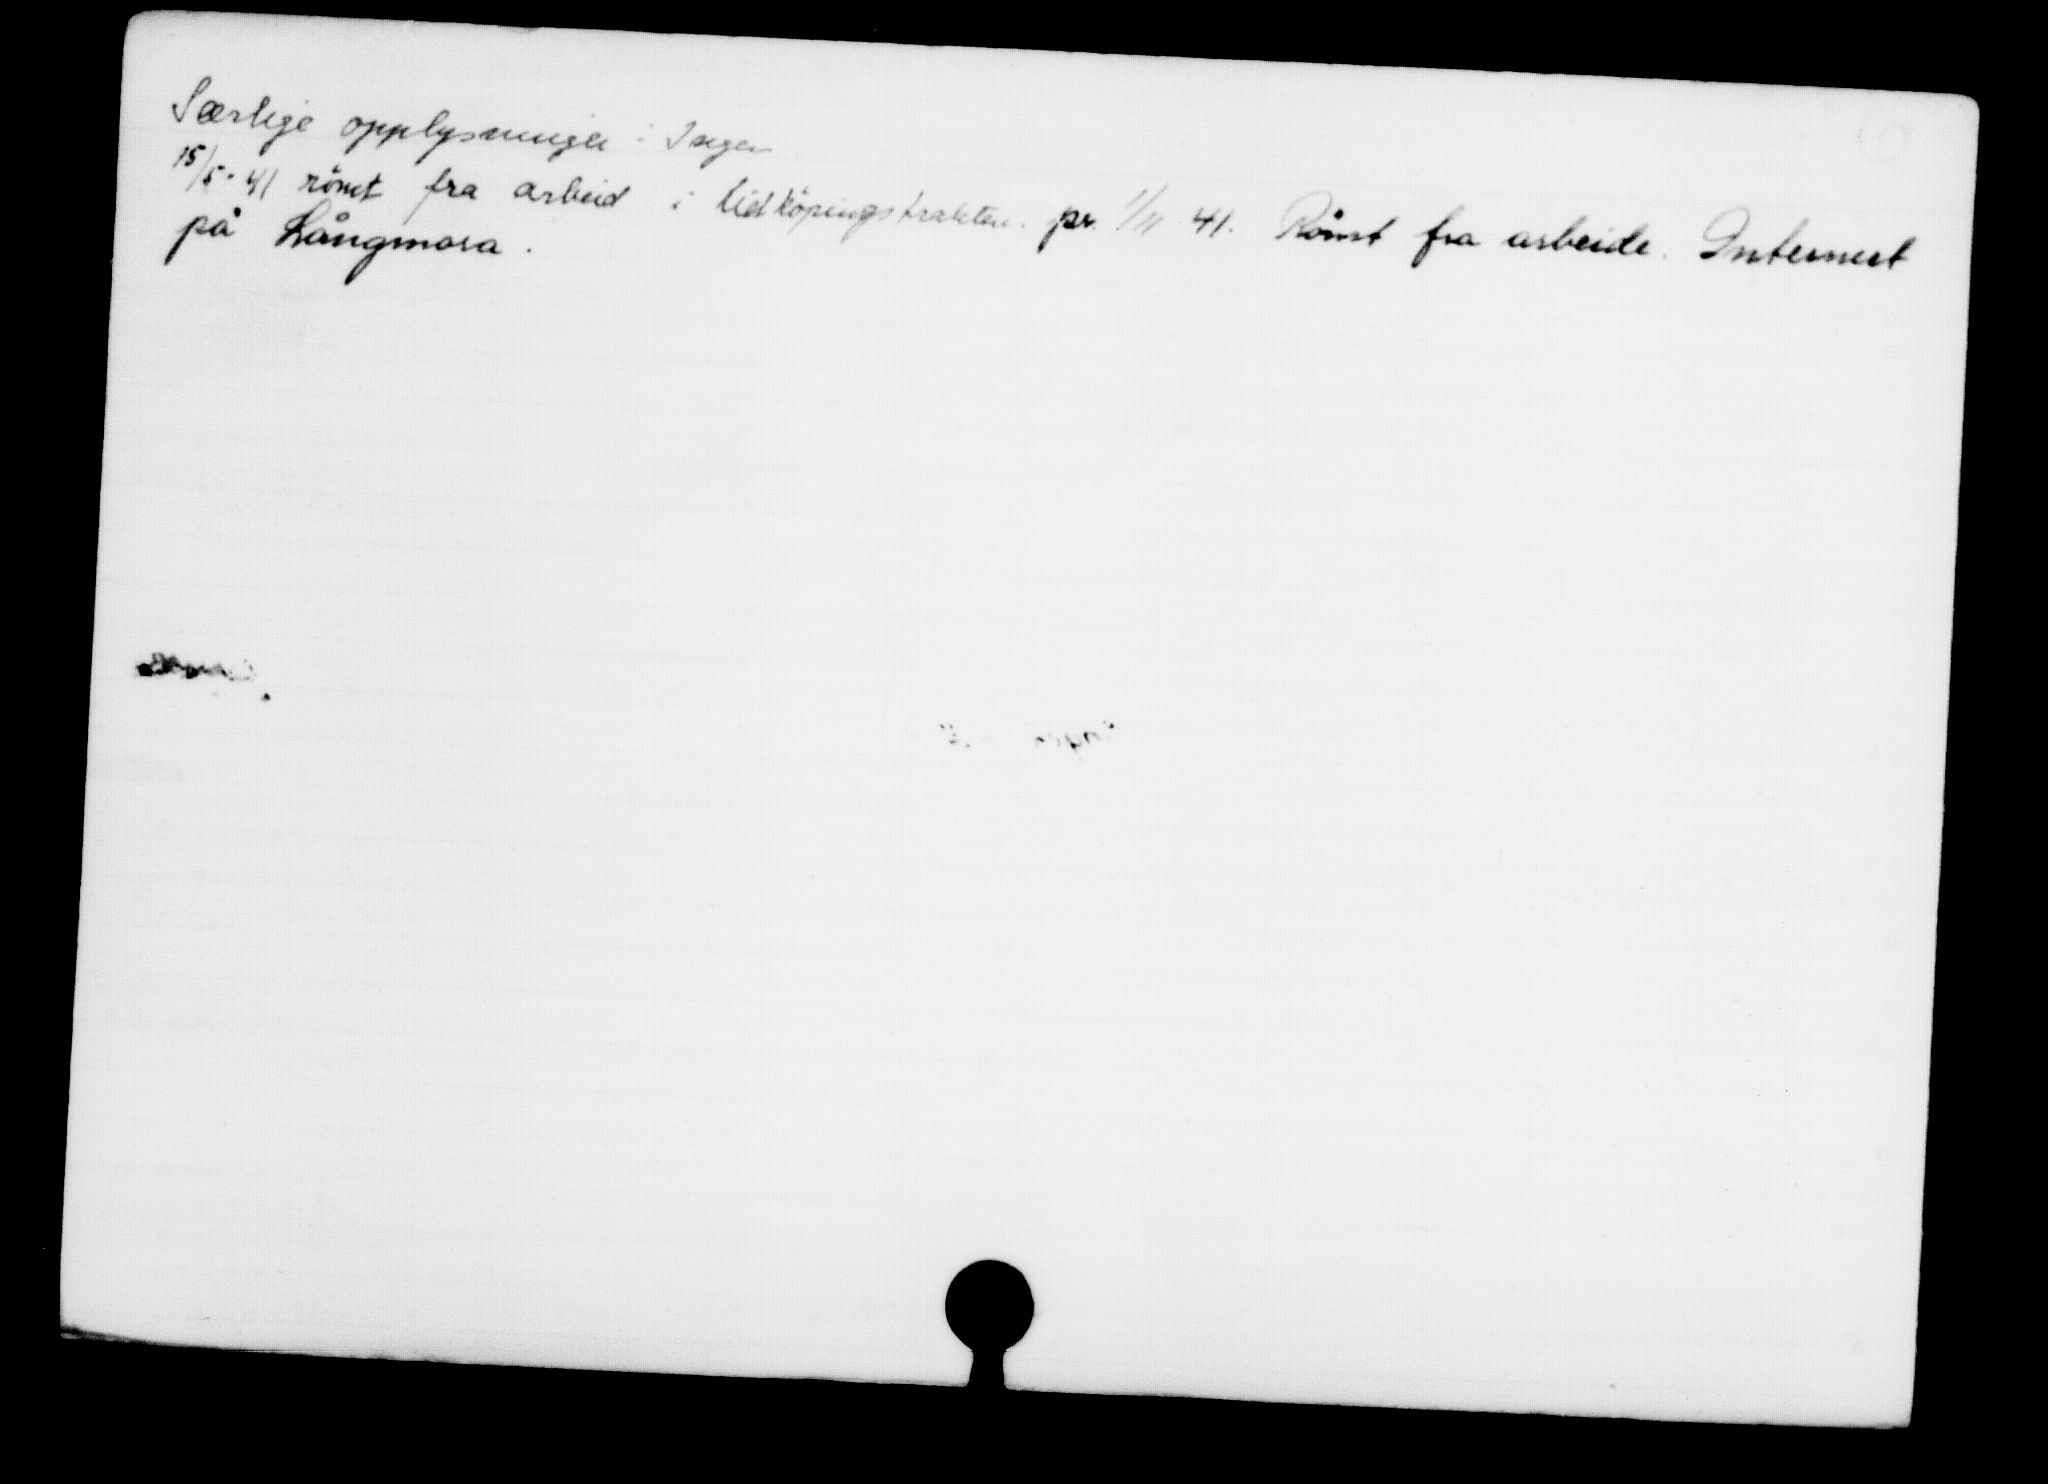 Særlige opplysninger: Ingen
15/5-41 römt fra arbeid i Lidköpingstrakten. pr. 1/11 41. Römt fra arbeide. Internert
på Långmora.